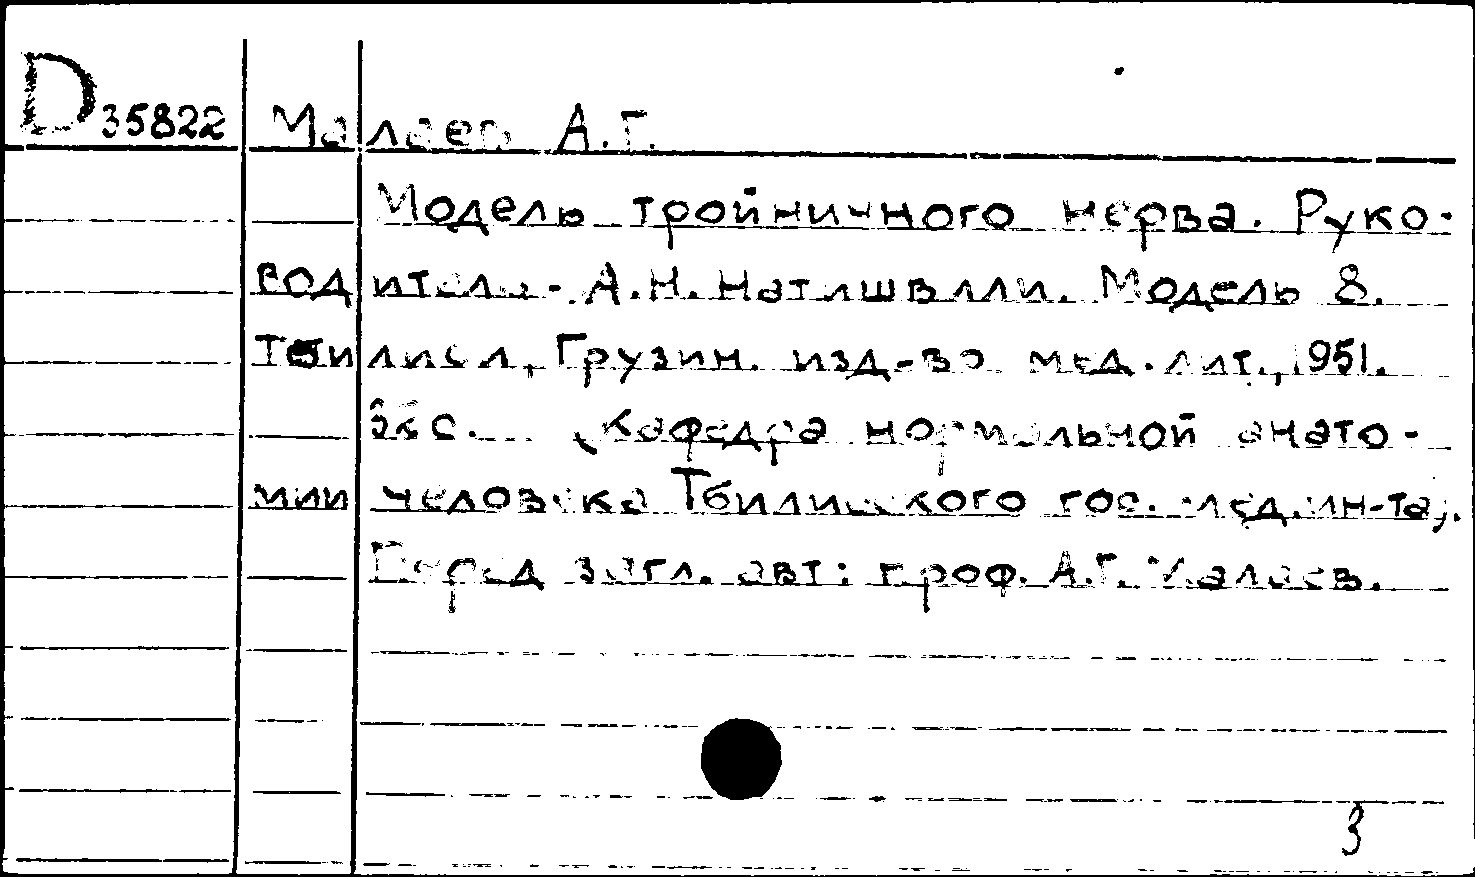 D 35822 Малаев А.Г.
Модель тройничного нерва. Руко-
водитель - А.Н. Натишвили. Модель 8.
Тбилиси, Грузин. изд-во мед. лит., 1951.
с. (Кафедра нормальной анато-
мии человека Тбилисского гос. мед. ин-та).
Перед загл. авт: проф. А.Г. Малаев.
3